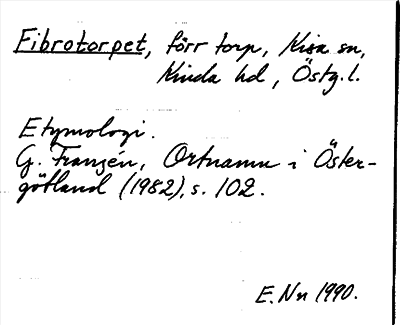 Fibrotorpet, förr torp, Kisa sn,
Kinda hd, Östg.l.
Etymologi.
G. Franzén, Ortnamn i Öster-
götland (1982), s. 102.
E. Nn 1990.